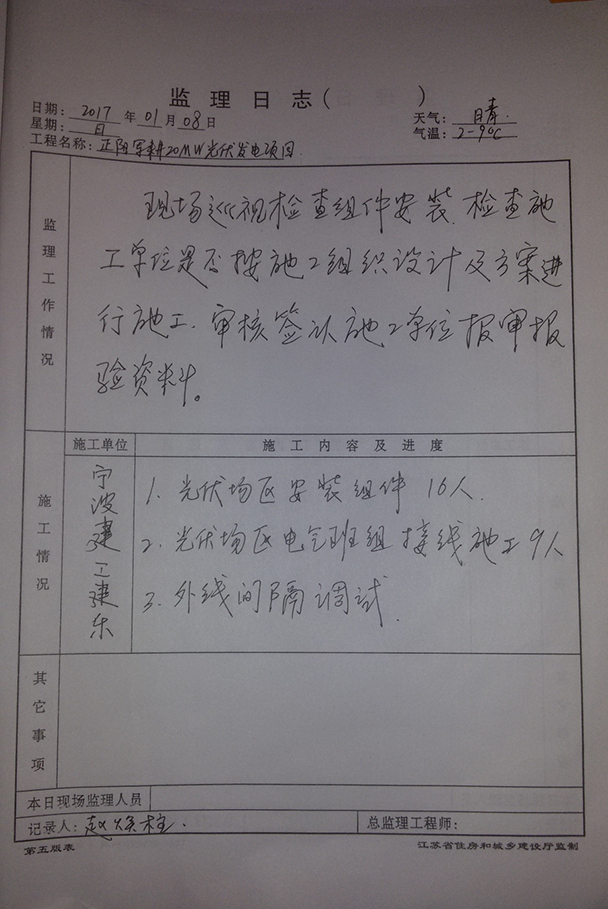 监理日志（ ）
日期：2017年01月08日
天气：晴.
星期：日
气温：2-9℃
工程名称：正阳军耕20MW光伏发电项目.
监理工作情况
现场巡视检查组件安装.检查施
工单位是否按施工组织设计及方案进
行施工.审核签认施工单位报审报
验资料。
施工情况
施工单位
施工内容及进度
宁波建工建乐
1. 光伏场区安装组件16人.
2. 光伏场区电气班组接线施工9人
3. 外线间隔调试.
其它事项
本日现场监理人员
记录人：赵焕柱.
总监理工程师：
第五版表
江苏省住房和城乡建设厅监制